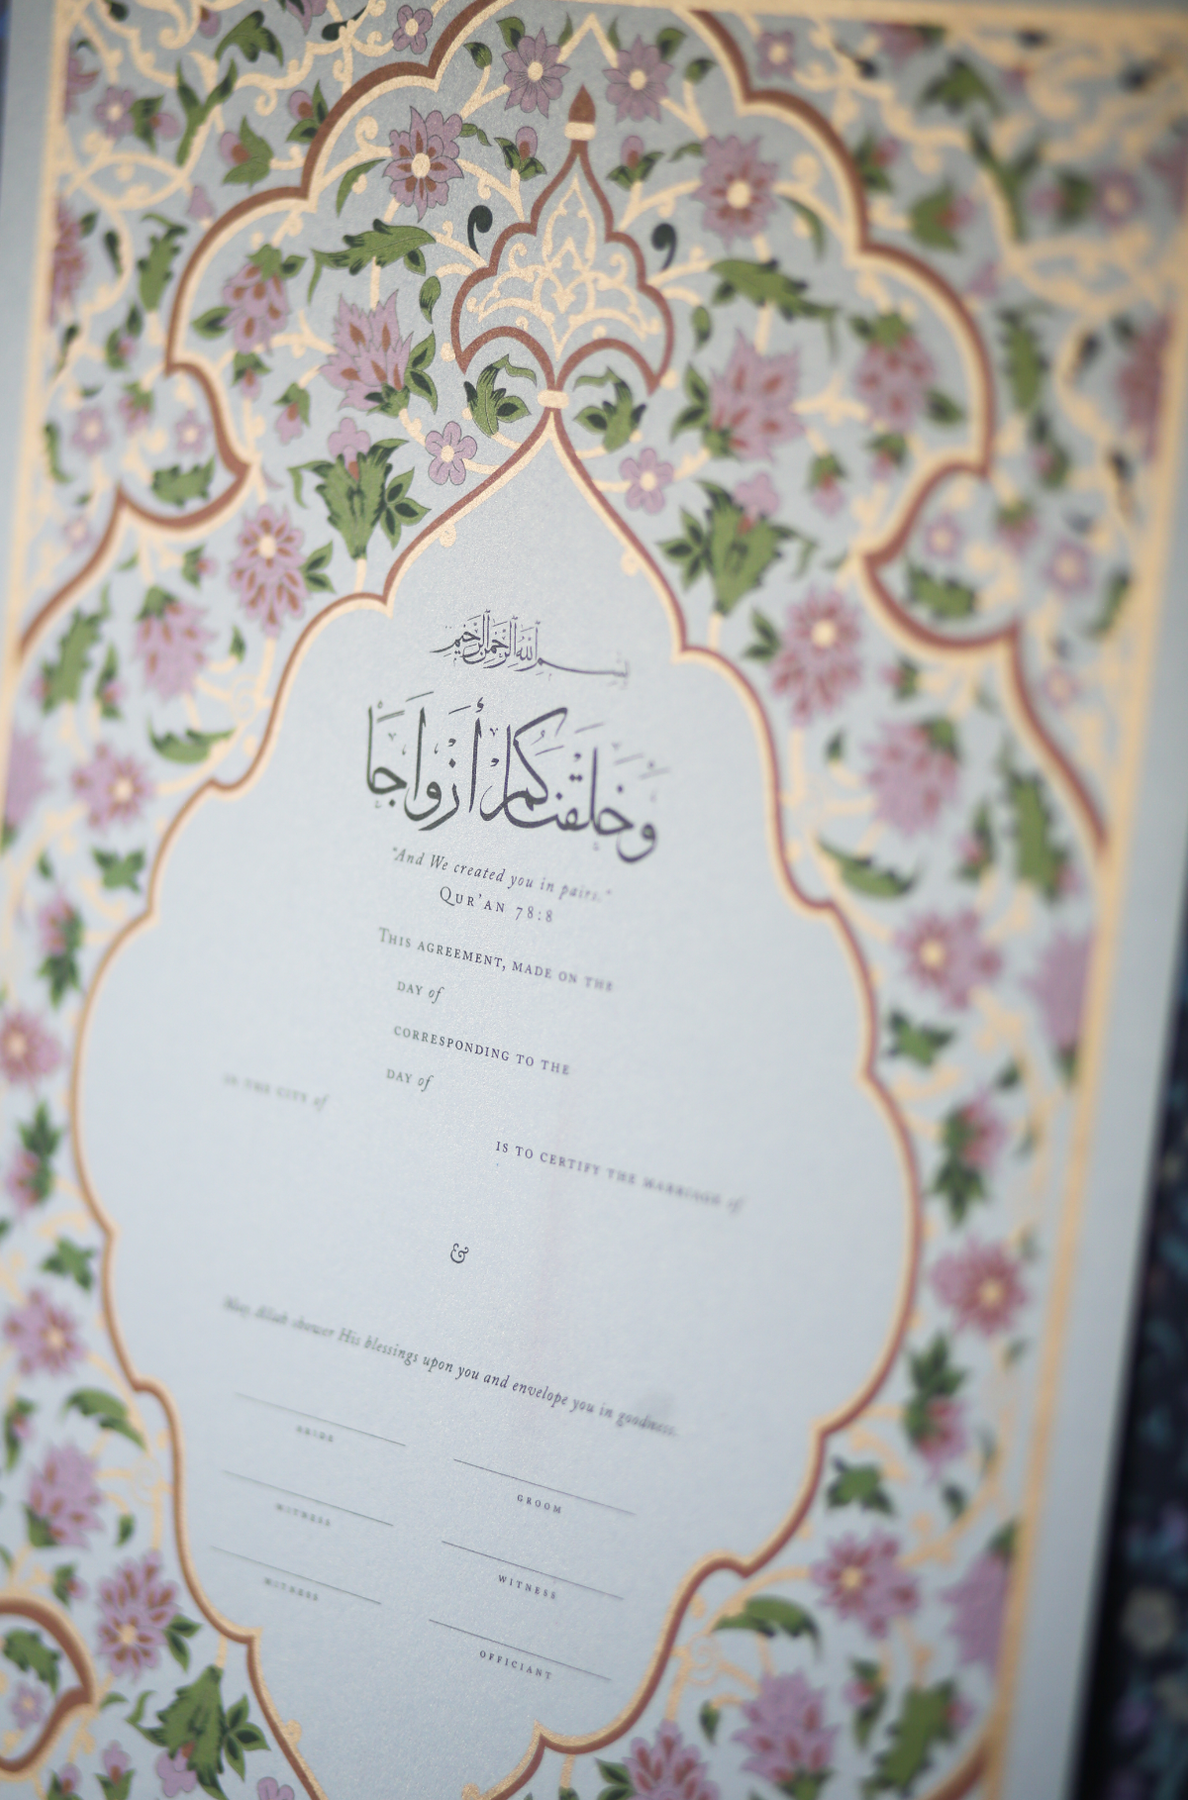 بسم الله الرحمن الرحيم
وخلقنكم أزواجا
"And We created you in pairs."
QUR'AN 78:8
THIS AGREEMENT, MADE ON THE
DAY of
CORRESPONDING TO THE
DAY of
IN THE CITY of
IS TO CERTIFY THE MARRIAGE of
&
May Allah shower His blessings upon you and envelope you in goodness.
BRIDE
GROOM
WITNESS
WITNESS
WITNESS
OFFICIANT